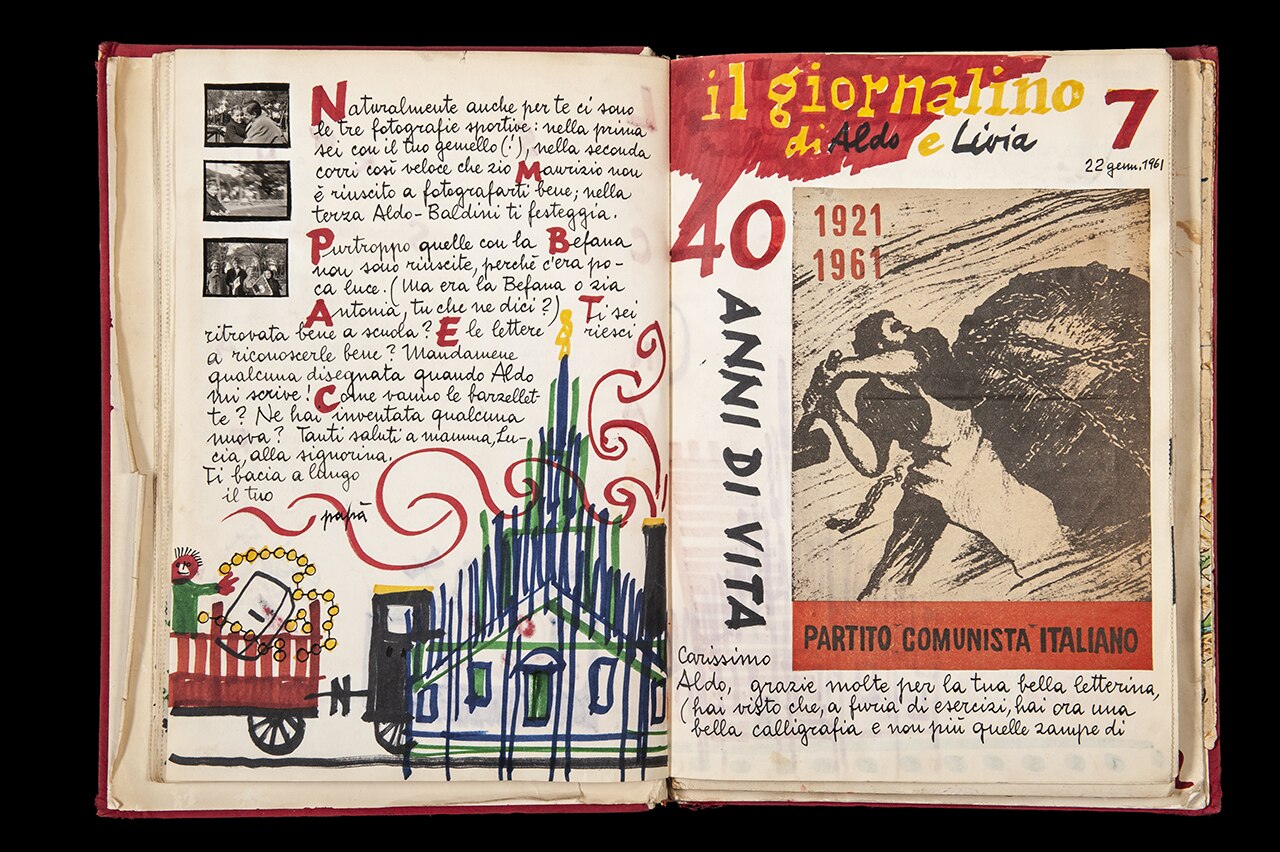 Naturalmente anche per te ci sono
le tre fotografie sportive: nella prima
sei con il tuo gemello (!), nella seconda
corri così veloce che zio Maurizio non
è riuscito a fotografarti bene; nella
terza Aldo-Baldini ti festeggia.
Purtroppo quelle con la Befana
non sono riuscite, perchè c'era po-
ca luce. (Ma era la Befana o zia
Antonia, tu che ne dici?) Ti sei
ritrovata bene a scuola? E le lettere riesci
a riconoscerle bene? Mandamene
qualcuna disegnata quando Aldo
mi scrive! Come vanno le barzellet-
te? Ne hai inventata qualcuna
nuova? Tanti saluti a mamma, Lu-
cia, alla signorina.
Ti bacia a lungo
il tuo
papà
il giornalino
di Aldo e Livia
7
22 genn. 1961
40
ANNI DI VITA
1921
1961
PARTITO COMUNISTA ITALIANO
Carissimo
Aldo, grazie molte per la tua bella letterina,
(hai visto che, a furia di esercizi, hai ora una
bella calligrafia e non più quelle zampe di